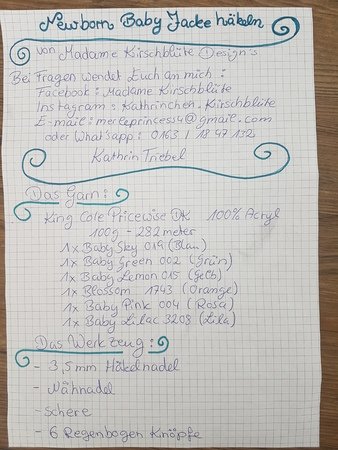 Newborn Baby Jacke häkeln
von Madame Kirschblüte Design's
Bei Fragen wendet Euch an mich :
Facebook : Madame Kirschblüte
Instagram : Kathrinchen.Kirschblüte
E-mail : merleprincess4@gmail.com
oder What'sapp : 0163 / 18 47 132
Kathrin Triebel
Das Garn :
King Cole Pricewise DK 100% Acryl
100g - 282 meter
1x Baby Sky 019 (Blau)
1x Baby Green 002 (Grün)
1x Baby Lemon 015 (Gelb)
1x Blossom 1743 (Orange)
1x Baby Pink 004 (Rosa)
1x Baby Lilac 3208 (Lila)
Das Werkzeug :
- 3,5 mm Häkelnadel
- Nähnadel
- Schere
- 6 Regenbogen Knöpfe